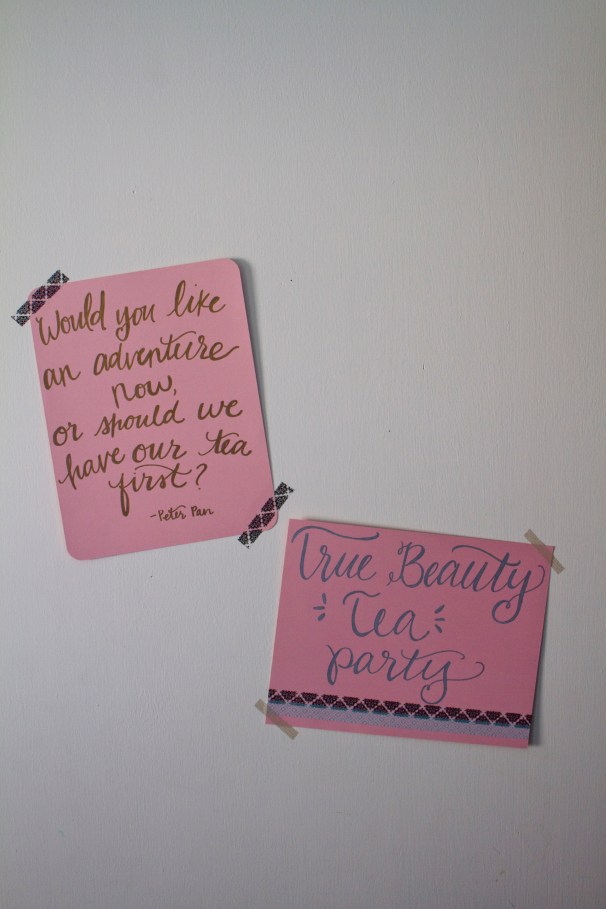 Would you like
an adventure
now,
or should we
have our tea
first?
-Peter Pan
True Beauty
Tea
party